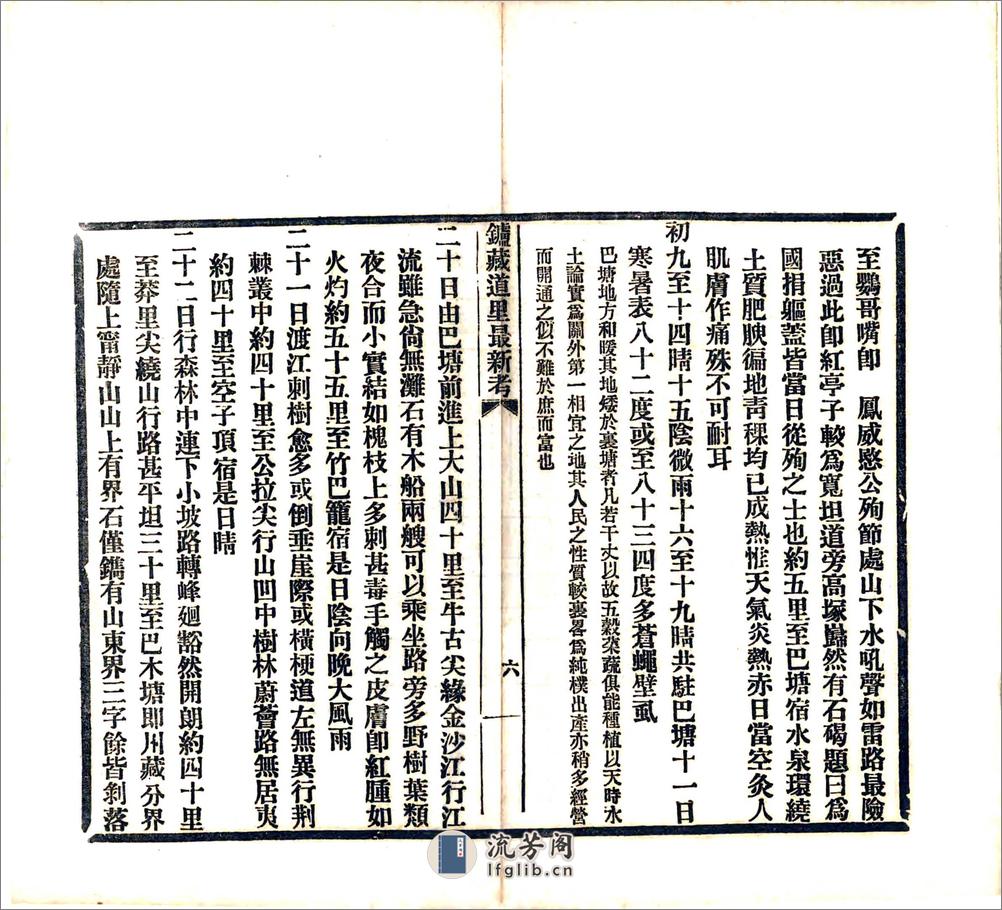 至鸚哥嘴卽　鳳威愍公殉節處山下水吼聲如雷路最險
惡過此卽紅亭子較爲寬坦道旁高塚巋然有石碣題曰爲
國捐軀蓋皆當日從殉之士也約五里至巴塘宿水泉環繞
土質肥腴徧地靑稞均已成熟惟天氣炎熱赤日當空灸人
肌膚作痛殊不可耐耳
初九至十四晴十五陰微雨十六至十九晴共駐巴塘十一日
寒暑表八十二度或至八十三四度多蒼蠅壁虱
巴塘地方和暖其地矮於裏塘者凡若干丈以故五穀菜蔬俱能種植以天時水
土論實爲關外第一相宜之地其人民之性質較裏畧爲純樸出產亦稍多經營
而開通之似不難於庶而富也
鑪藏道里最新考
六
二十日由巴塘前進上大山四十里至牛古尖緣金沙江行江
流雖急尙無灘石有木船兩艘可以乘坐路旁多野樹葉類
夜合而小實結如槐枝上多刺甚毒手觸之皮膚卽紅腫如
火灼約五十五里至竹巴籠宿是日陰向晚大風雨
二十一日渡江刺樹愈多或倒垂崖際或橫梗道左無異行荆
棘叢中約四十里至公拉尖行山凹中樹林蔚薈路無居夷
約四十里至空子頂宿是日晴
二十二日行森林中連下小坡路轉峰廻豁然開朗約四十里
至莽里尖繞山行路甚平坦三十里至巴木塘即川藏分界
處隨上甯靜山山上有界石僅鐫有山東界三字餘皆剝落
流芳阁
lfglib.cn